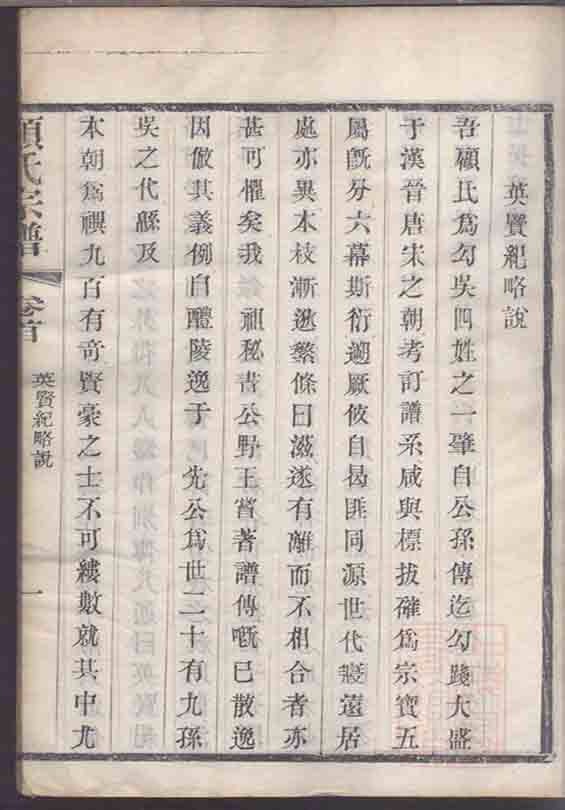 英賢紀略說
吾顧氏爲勾吳四姓之一肇自公孫傳迄勾踐大盛
于漢晉唐宋之朝考訂譜系咸與標拔確爲宗寶五
屬旣分六幕斯衍遡厥攸自曷匪同源世代寖遠居
處亦異本枝漸逖繁條日滋遂有離而不相合者亦
甚可懼矣我 祖秘書公野王嘗著譜傳嘅已散逸
因倣其義例自醴陵逸于 先公爲世二十有九孫
吳之代繇及
本朝爲禩九百有奇賢豪之士不可縷數就其中尤
顧氏宗譜
卷首
英賢紀略說
一